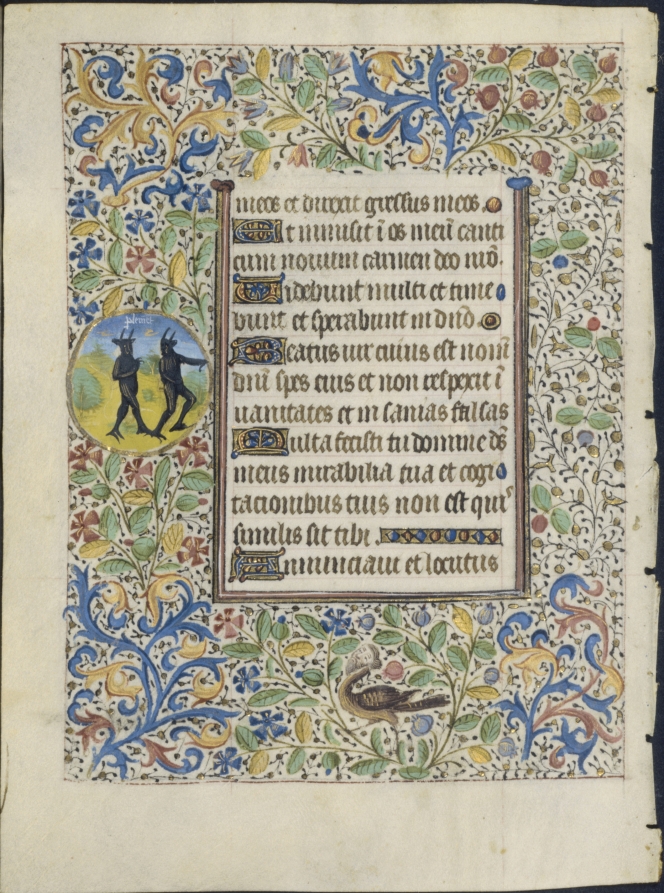 meos et direxit gressus meos.
Et inmisit ī os meū canti
cum nouum carmen deo nr̄o.
Videbunt multi et time
bunt et sperabunt in dn̄o.
Beatus uir cuius est nomē
dn̄i spes eius et non respexit ī
uanitates et in sanias falsas
Multa fecisti tu domine ds̄
meus mirabilia tua et cogi
tacionibus tuis non est qui
similis sit tibi.
Annunciaui et locutus